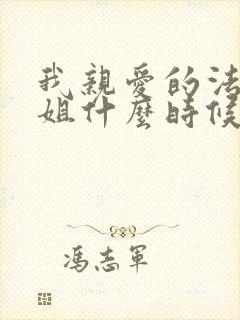 我親愛的法
姐什麼時候
馮志軍